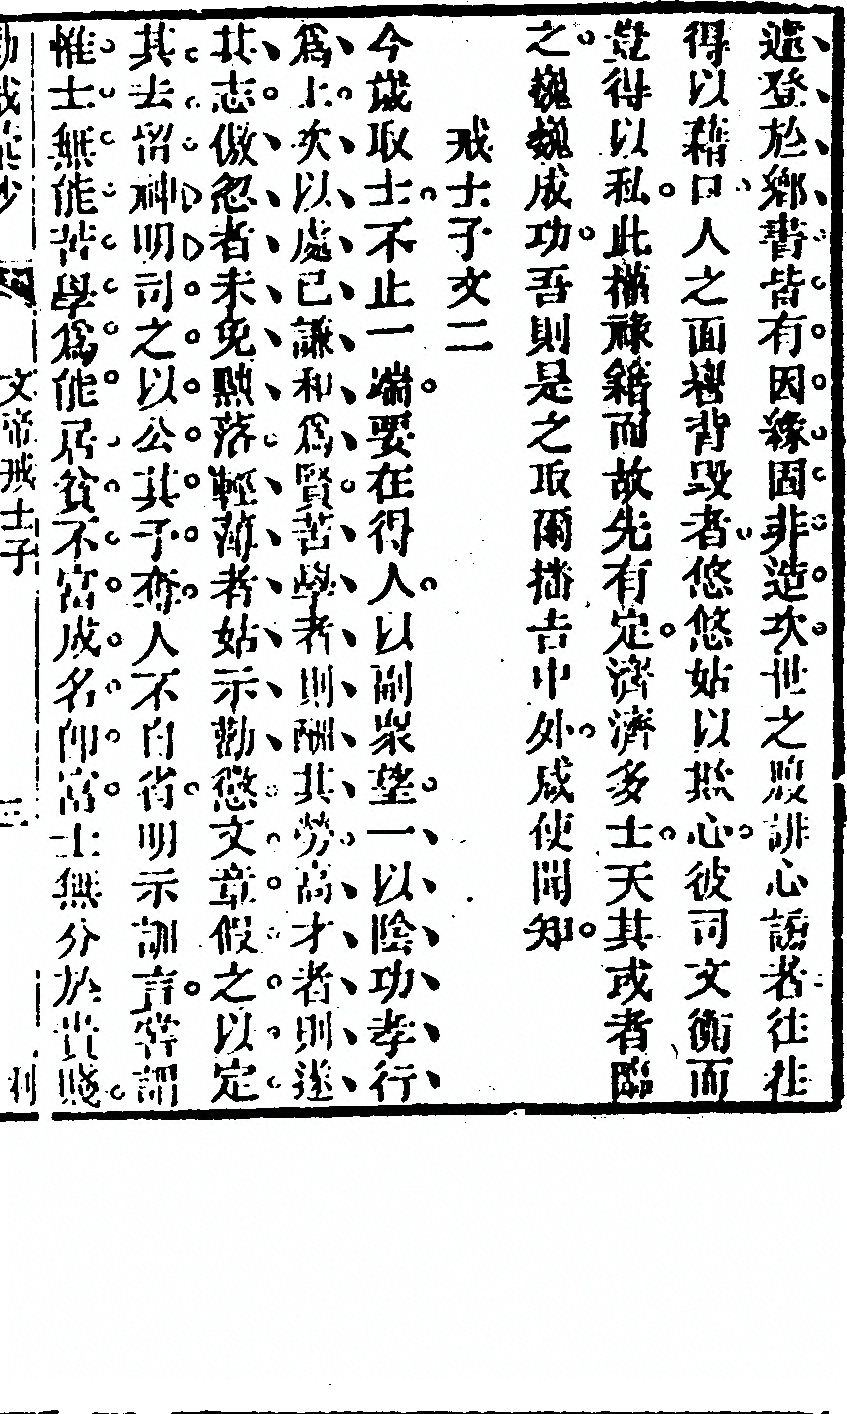 遽登於鄉書皆有因緣固非造次世之腹誹心謗者往往
得以藉口人之面譽背毀者悠悠姑以欺心彼司文衡而
豈得以私此攉祿籍而故先有定濟濟多士天其或者臨
之巍巍成功吾則是之取爾播告中外咸使聞知
戒士子文二
今歲取士不止一端要在得人以副衆望一以陰功孝行
爲上次以處已謙和爲賢苦學者則酬其勞高才者則遂
其志傲忽者未免黜落輕薄者姑示勸懲文章假之以定
其去留神明司之以公其予奪人不自省明示訓言嘗謂
惟士無能苦學爲能居貧不富成名卽富士無分於貴賤
文帝戒士子
三